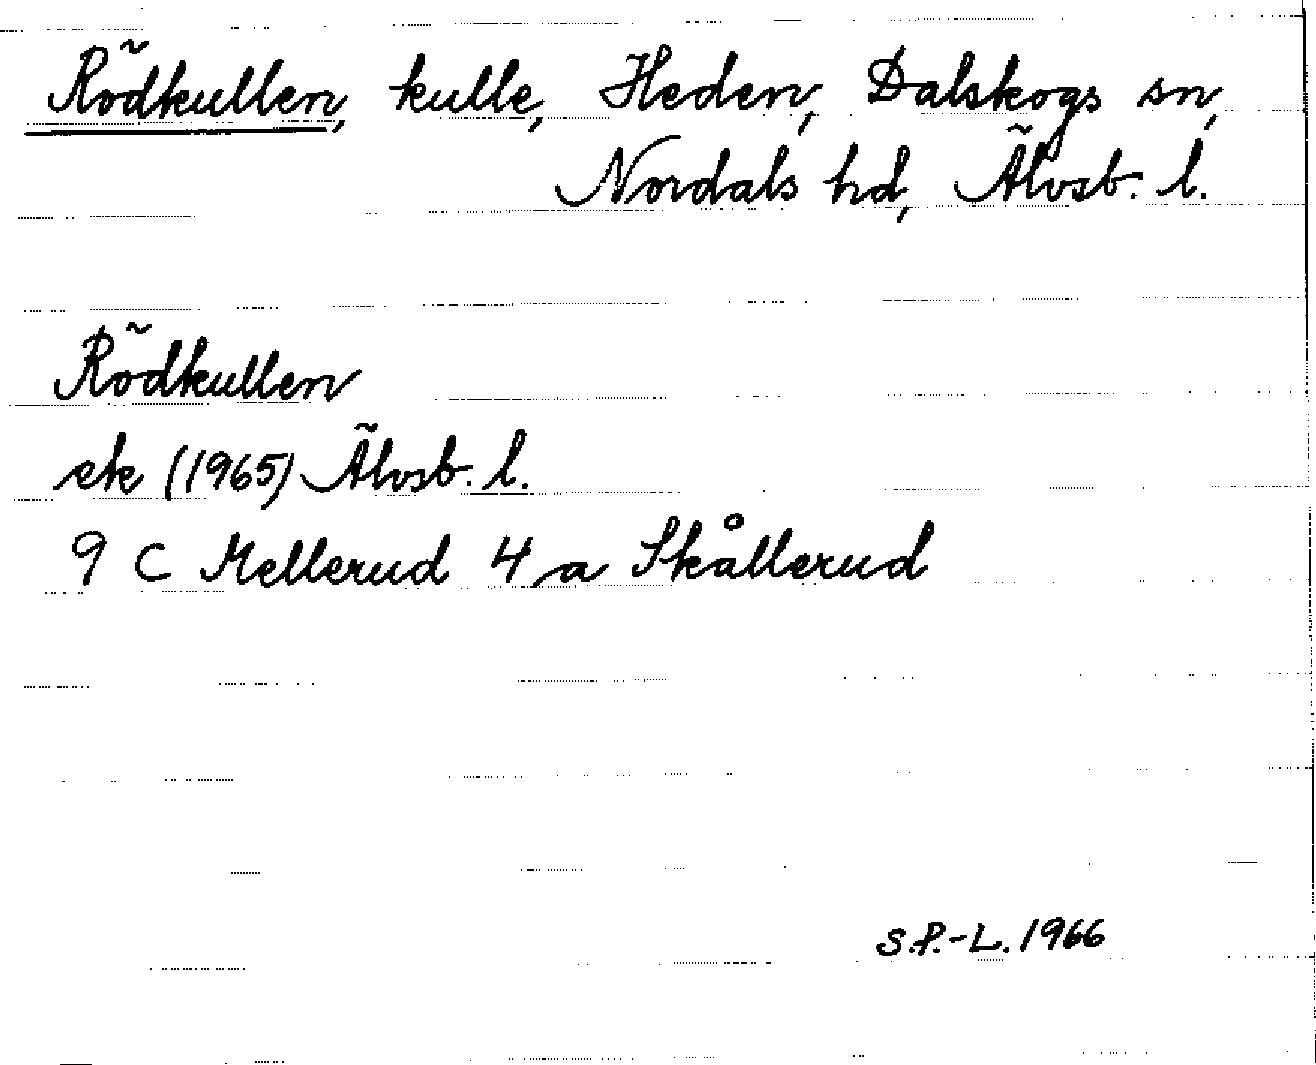 Rödkullen, kulle, Heden, Dalskogs sn,
Nordals hd, Älvsb. l.
Rödkullen
ek (1965) Älvsb. l.
9 C Mellerud 4 a Skållerud
S.P.-L. 1966